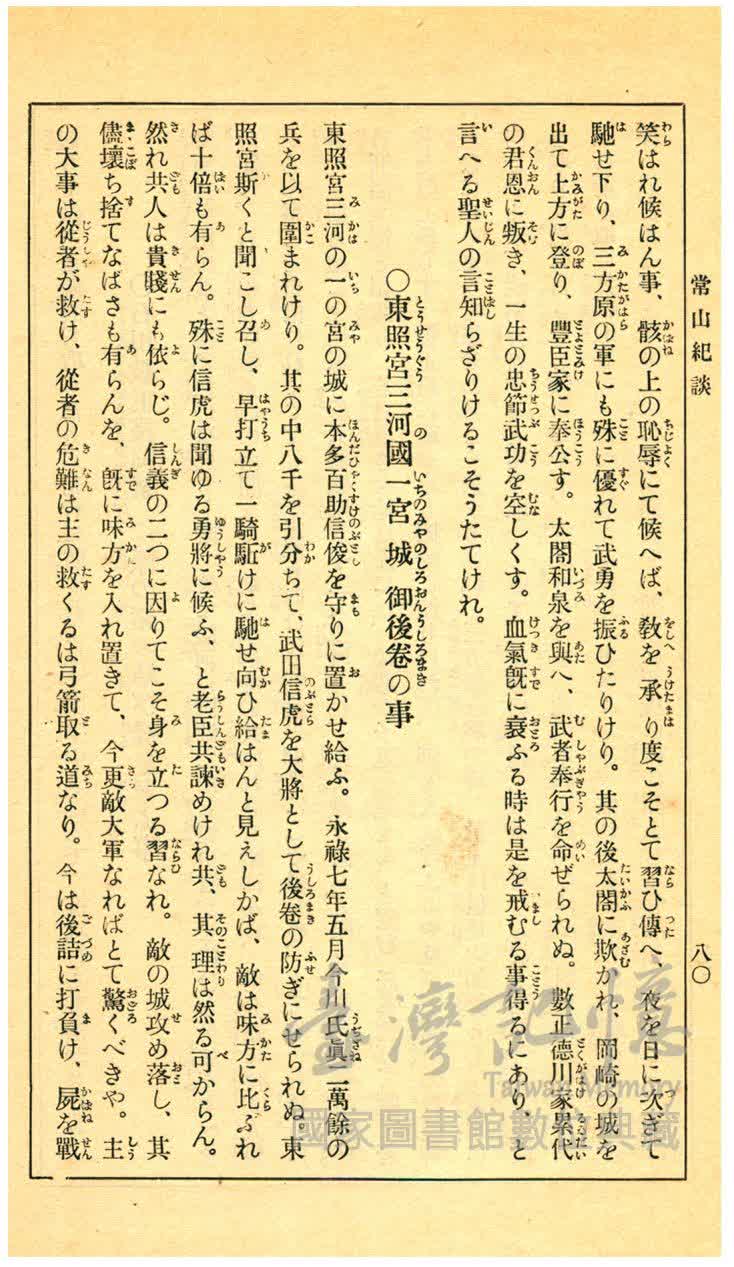 常山紀談
八〇
笑はれ候はん事、骸の上の恥辱にて候へば、敎を承り度こそとて習ひ傳へ、夜を日に次ぎて
馳せ下り、三方原の軍にも殊に優れて武勇を振ひたりけり。其の後太閤に欺かれ、岡崎の城を
出て上方に登り、豐臣家に奉公す。太閤和泉を與へ、武者奉行を命ぜられぬ。數正德川家累代
の君恩に叛き、一生の忠節武功を空しくす。血氣旣に衰ふる時は是を戒むる事得るにあり、と
言へる聖人の言知らざりけるこそうたてけれ。
〇東照宮三河國一宮城御後卷の事
東照宮三河の一の宮の城に本多百助信俊を守りに置かせ給ふ。永祿七年五月今川氏眞二萬餘の
兵を以て圍まれけり。其の中八千を引分ちて、武田信虎を大將として後卷の防ぎにせられぬ。東
照宮斯くと聞こし召し、早打立て一騎駈けに馳せ向ひ給はんと見えしかば、敵は味方に比ぶれ
ば十倍も有らん。殊に信虎は聞ゆる勇將に候ふ、と老臣共諫めけれ共、其理は然る可からん。
然れ共人は貴賤にも依らじ。信義の二つに因りてこそ身を立つる習なれ。敵の城攻め落し、其
儘壞ち捨てなばさも有らんを、旣に味方を入れ置きて、今更敵大軍なればとて驚くべきや。主
の大事は從者が救け、從者の危難は主の救くるは弓箭取る道なり。今は後詰に打負け、屍を戰
臺灣記憶
Taiwan Memory
國家圖書館數位典藏